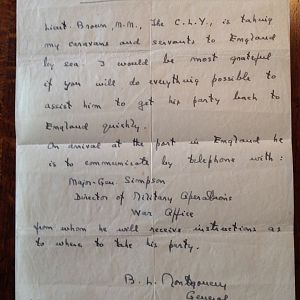 Lieut. Brown, M.M., The C.L.Y., is taking
my caravans and servants to England
by sea. I would be most grateful
if you will do everything possible to
assist him to get his party back to
England quickly.
On arrival at the port in England he
is to communicate by telephone with:
Major-Gen. Simpson
Director of Military Operations
War Office
from whom he will receive instructions as
to where to take his party.
B. L. Montgomery
General